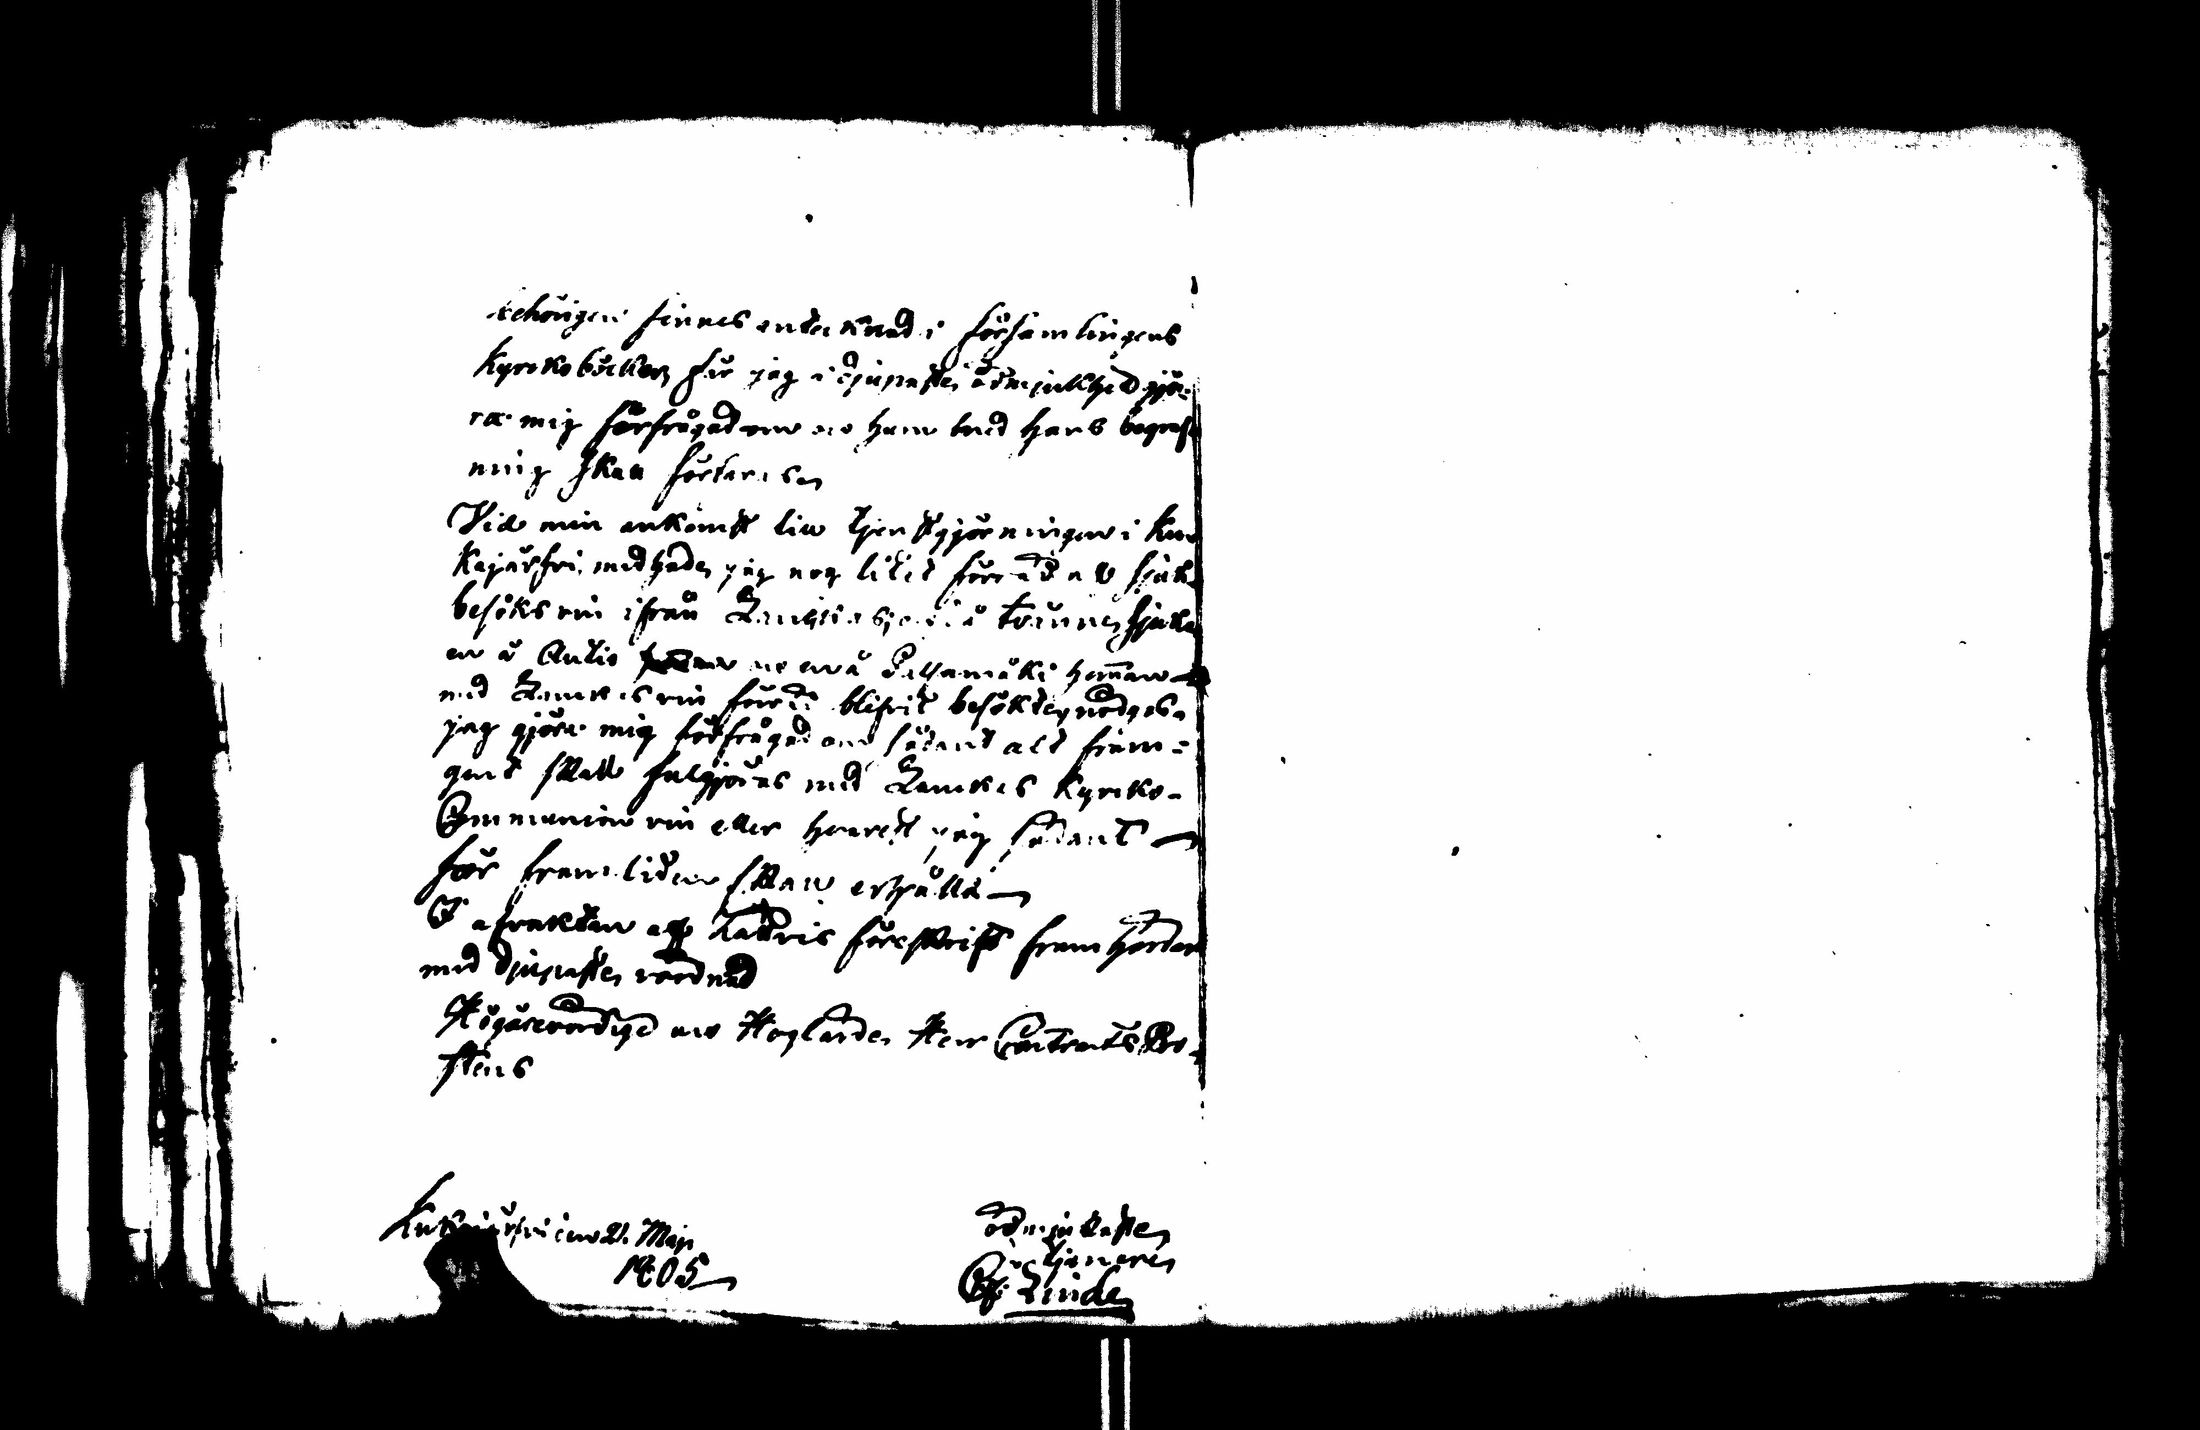 behörigen finnes antecknad i församlingens
kyrkoböcker får jag i djupaste ödmjukhed gjö-
ra mig förfrågad om med hans begraf
ning skall förfaras
Vid min ankomst till tjenstgjörningen i Ku
kajärfvi medhade jag nog litet förråd af sjuk
besöks vin ifrån tvänne sjuka
en å Antis en å Paljamäki hemman
med vin förut blifvit besökte nödgas
jag gjöra mig förfrågad om sådant alt fram-
gent skall fulgjöras med Kyrko-
Communion vin eller hvarest jag sådant
för framtiden skall erhålla
I afvaktan af föreskrift framhärdar
med djupaste vördnad
Högärevördige och Höglärde Herr Contracts Pro-
stens
Kukajärfvi den 21 Maji
1805
ödmjukaste
tjenare
Linde